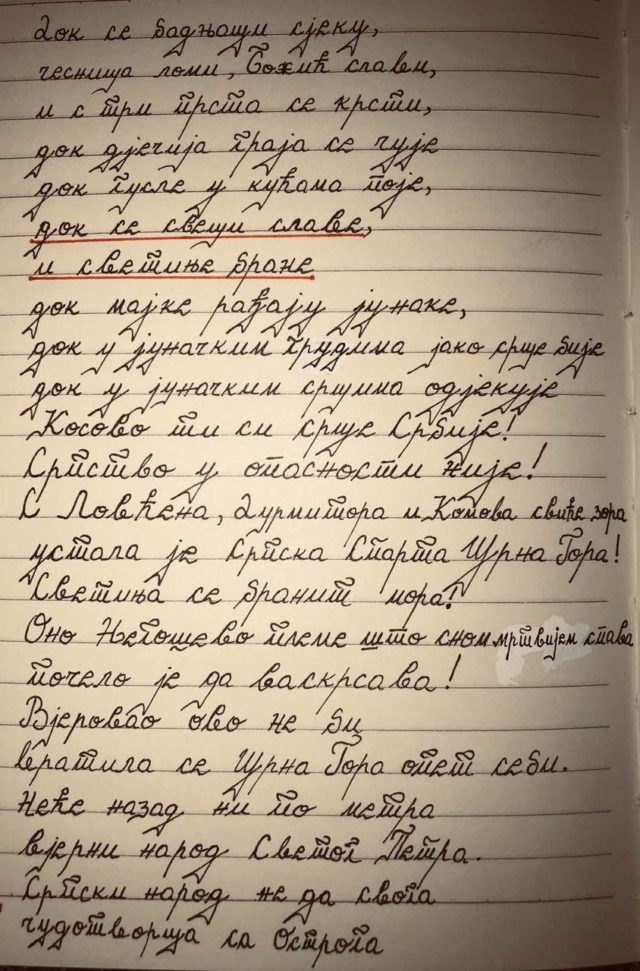 Док се бадњаци сјеку,
чесница ломи, Божић слави,
и с три прста се крсти,
док дјечија граја се чује
док гусле у кућама поје,
док се свеци славе,
и светиње бране
док мајке рађају јунаке,
док у јуначким грудима јако срце бије
док у јуначким срцима одјекује
Косово ти си срце Србије!
Српство у опасности није!
С Ловћена, Дурмитора и Комова свиће зора
устала је Српска Спарта Црна Гора!
Светиња се бранит мора!
Оно Његошево племе што сном мртвијем спава
почело је да васкрсава!
Вјеровао ово не би
вратила се Црна Гора опет себи.
Неће назад ни по метра
вјерни народ Светог Петра.
Српски народ не да свога
чудотворца са Острога